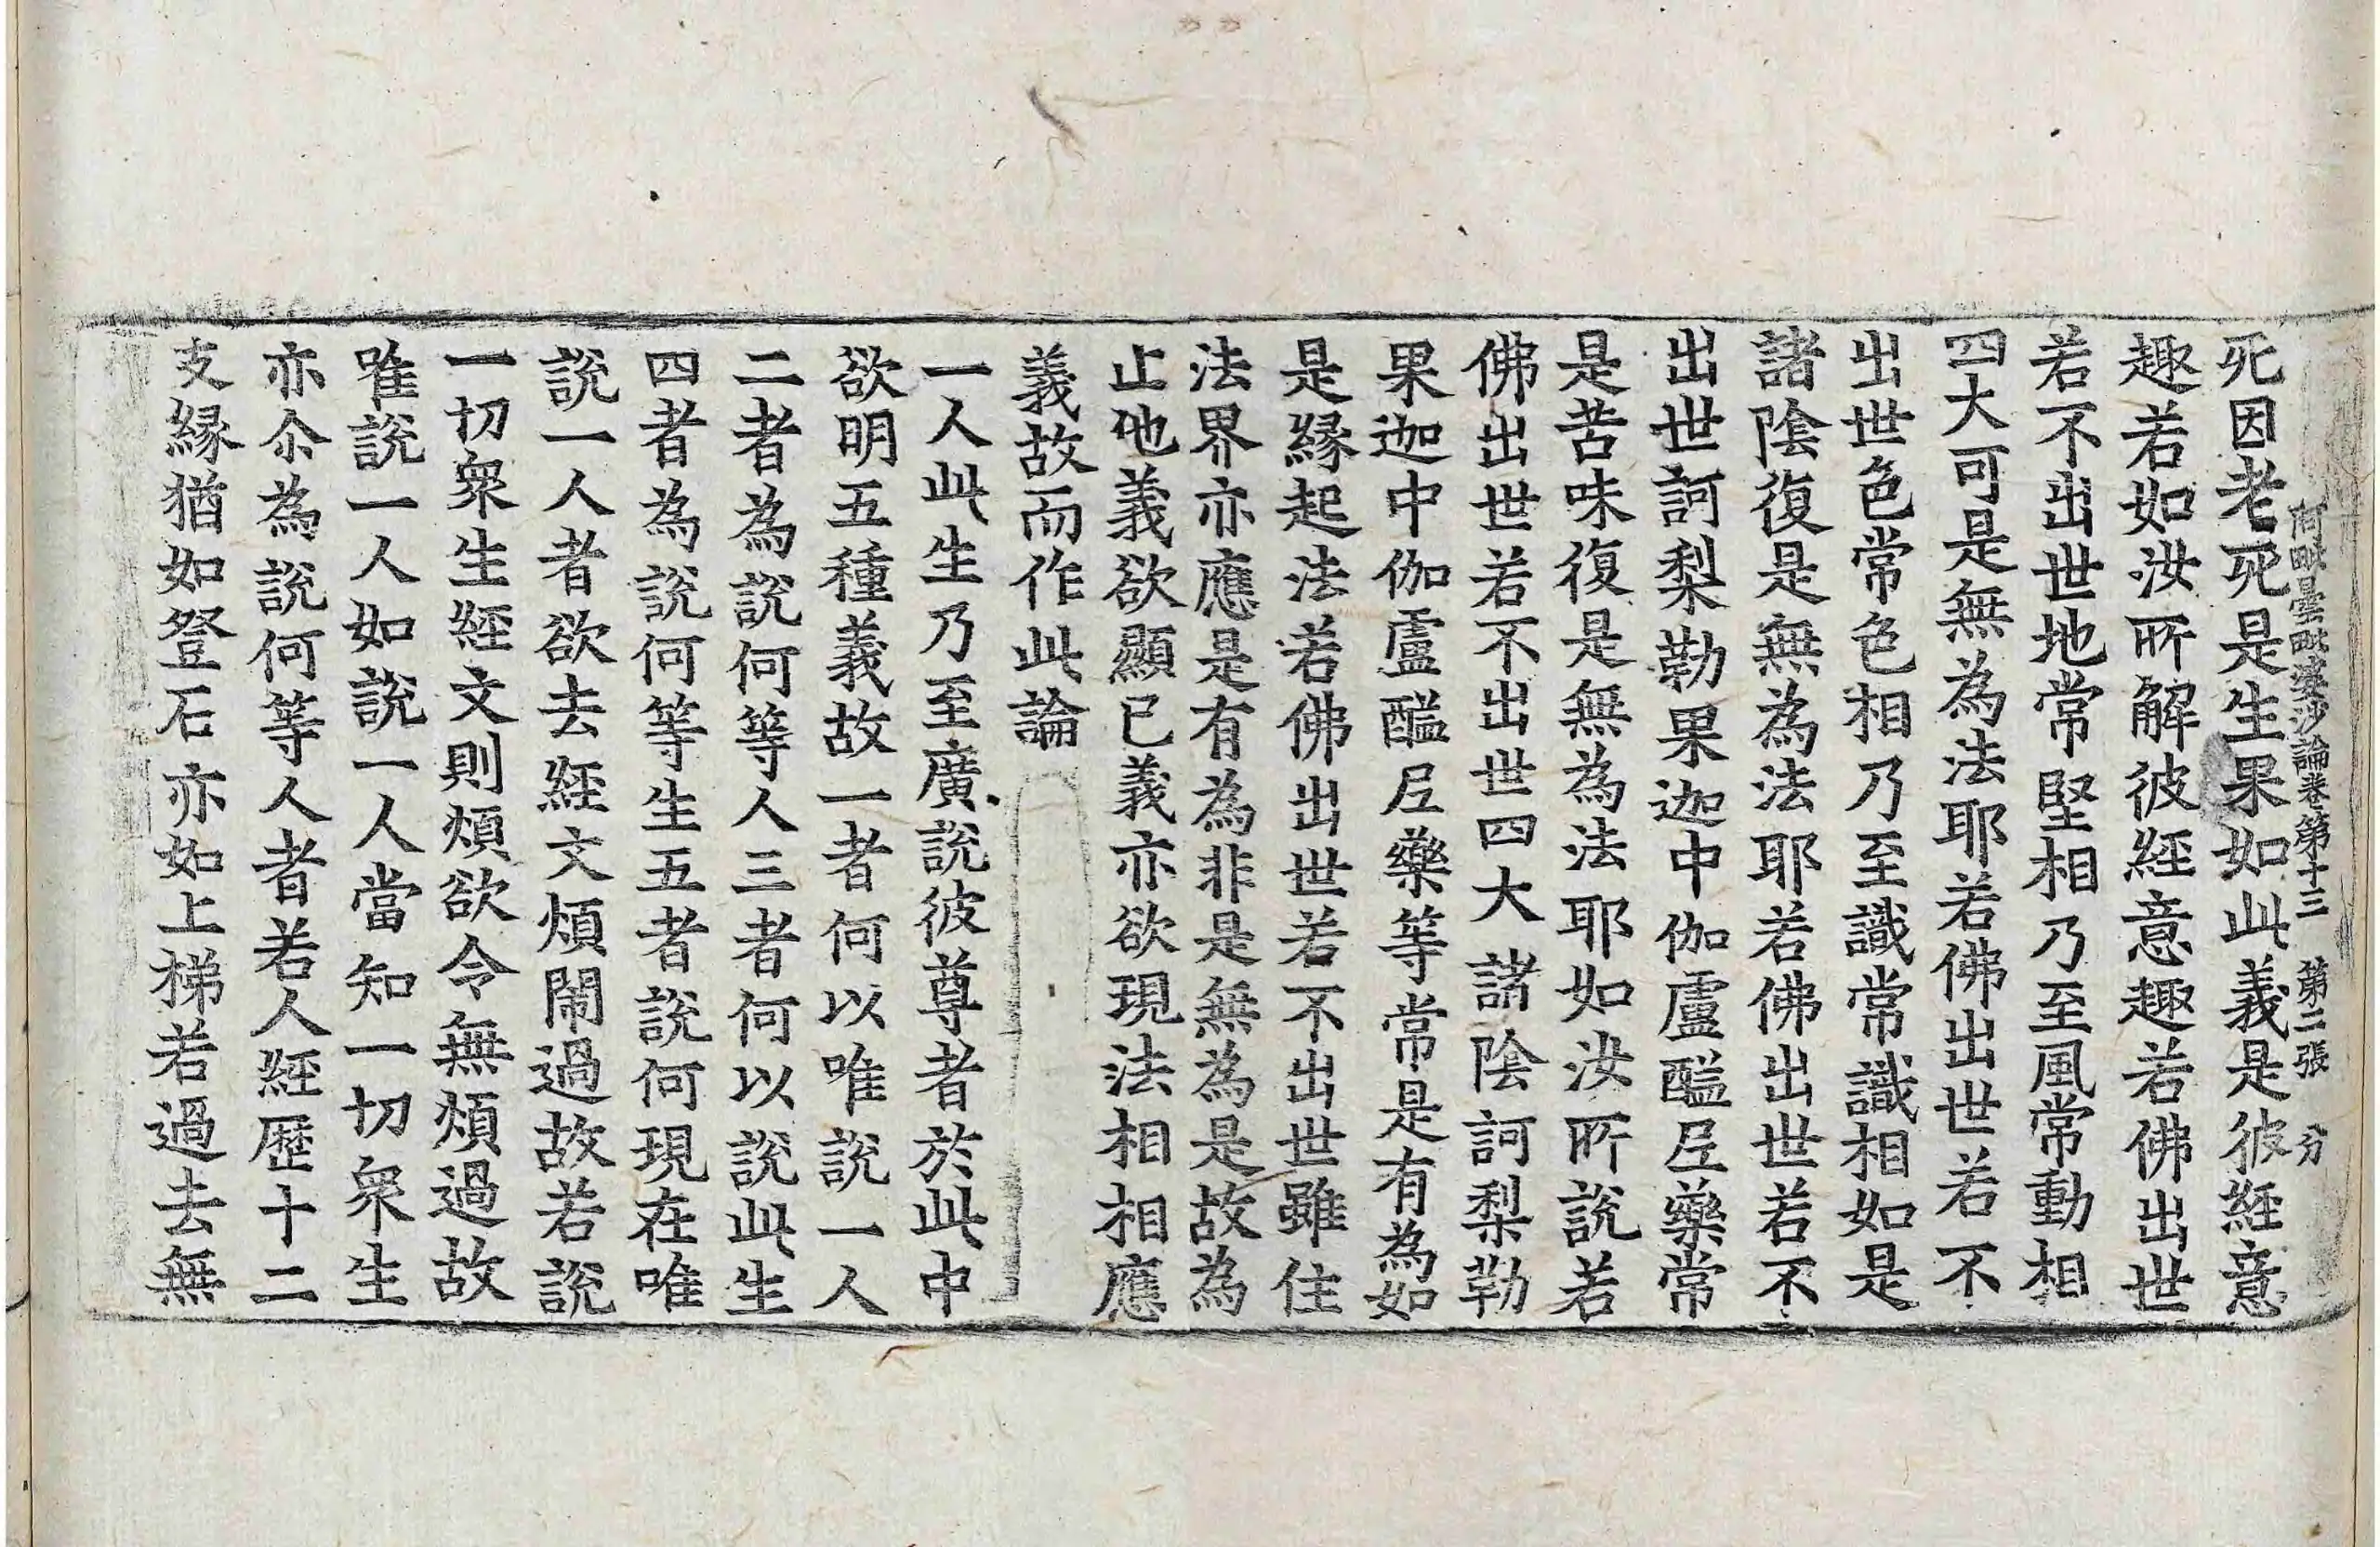 阿毗曇毗婆沙論卷第十三　第二張　分
死因老死是生果如此義是彼經意
趣若如汝所解彼經意趣若佛出世
若不出世地常堅相乃至風常動相
四大可是無為法耶若佛出世若不
出世色常色相乃至識常識相如是
諸陰復是無為法耶若佛出世若不
出世訶梨勒果迦中伽盧醯𡰱藥常
是苦味復是無為法耶如汝所說若
佛出世若不出世四大諸陰訶梨勒
果迦中伽盧醯𡰱藥等常是有為如
是緣起法若佛出世若不出世雖住
法界亦應是有為非是無為是故為
止他義欲顯已義亦欲現法相相應
義故而作此論
一人此生乃至廣說彼尊者於此中
欲明五種義故一者何以唯說一人
二者為說何等人三者何以說此生
四者為說何等生五者說何現在唯
說一人者欲去經文煩鬧過故若說
一切眾生經文則煩欲令無煩過故
唯說一人如說一人當知一切眾生
亦尒為說何等人者若人經歷十二
支緣猶如登石亦如上梯若過去無